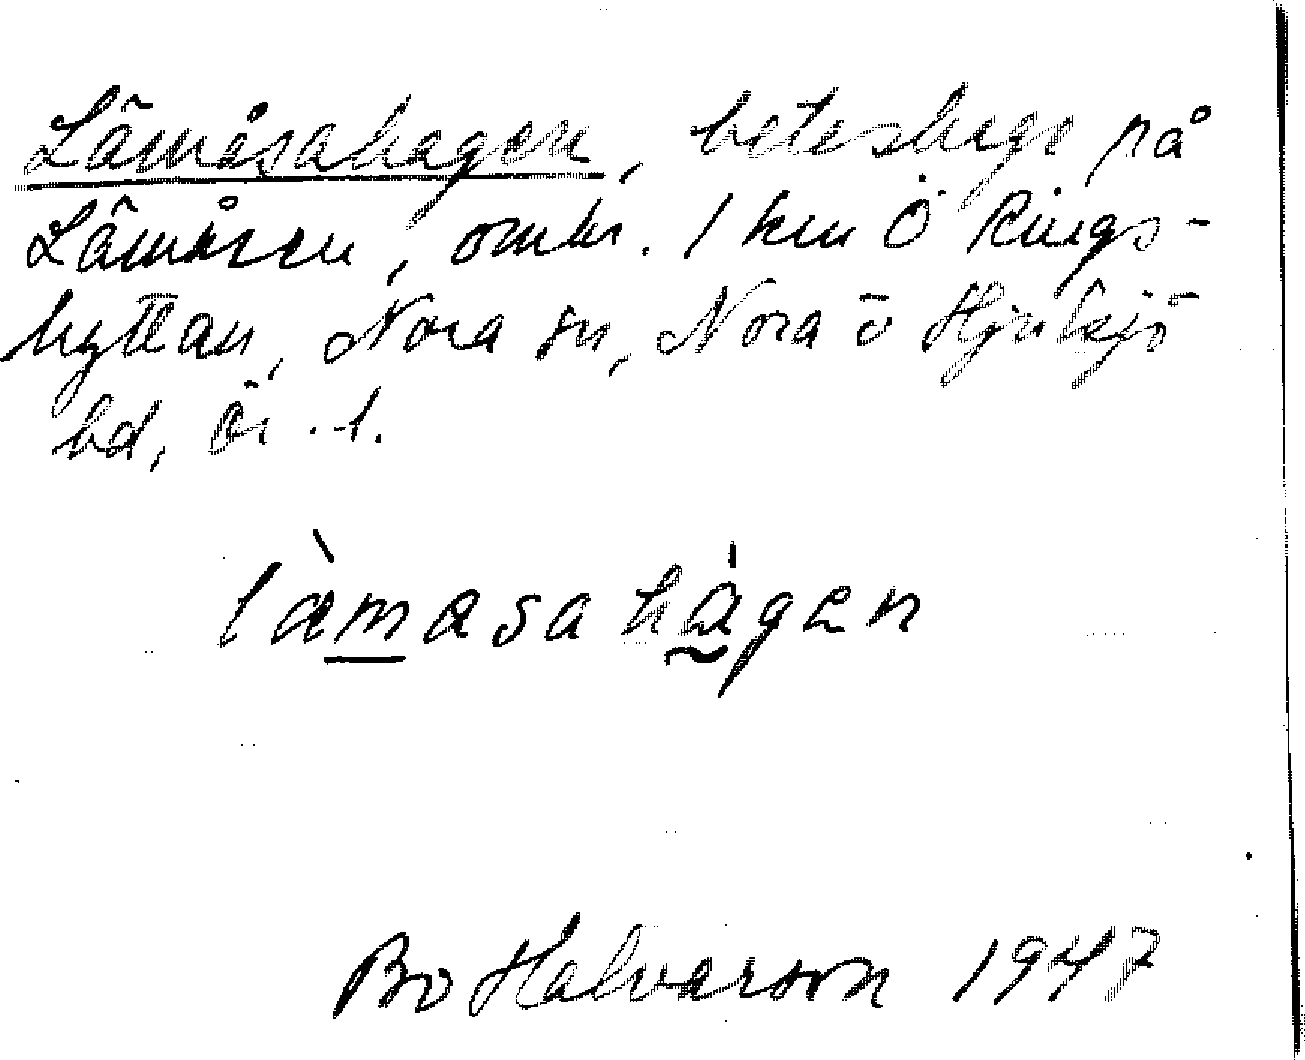 Lâmåsahagen, beteshage på
Lâmåsen, omkr. 1 km Ö Rings-
hyttan, Nora sn, Nora o Hjulsjö
bd, Ör. l.
làmasahágen
Bo Halvarson 1947